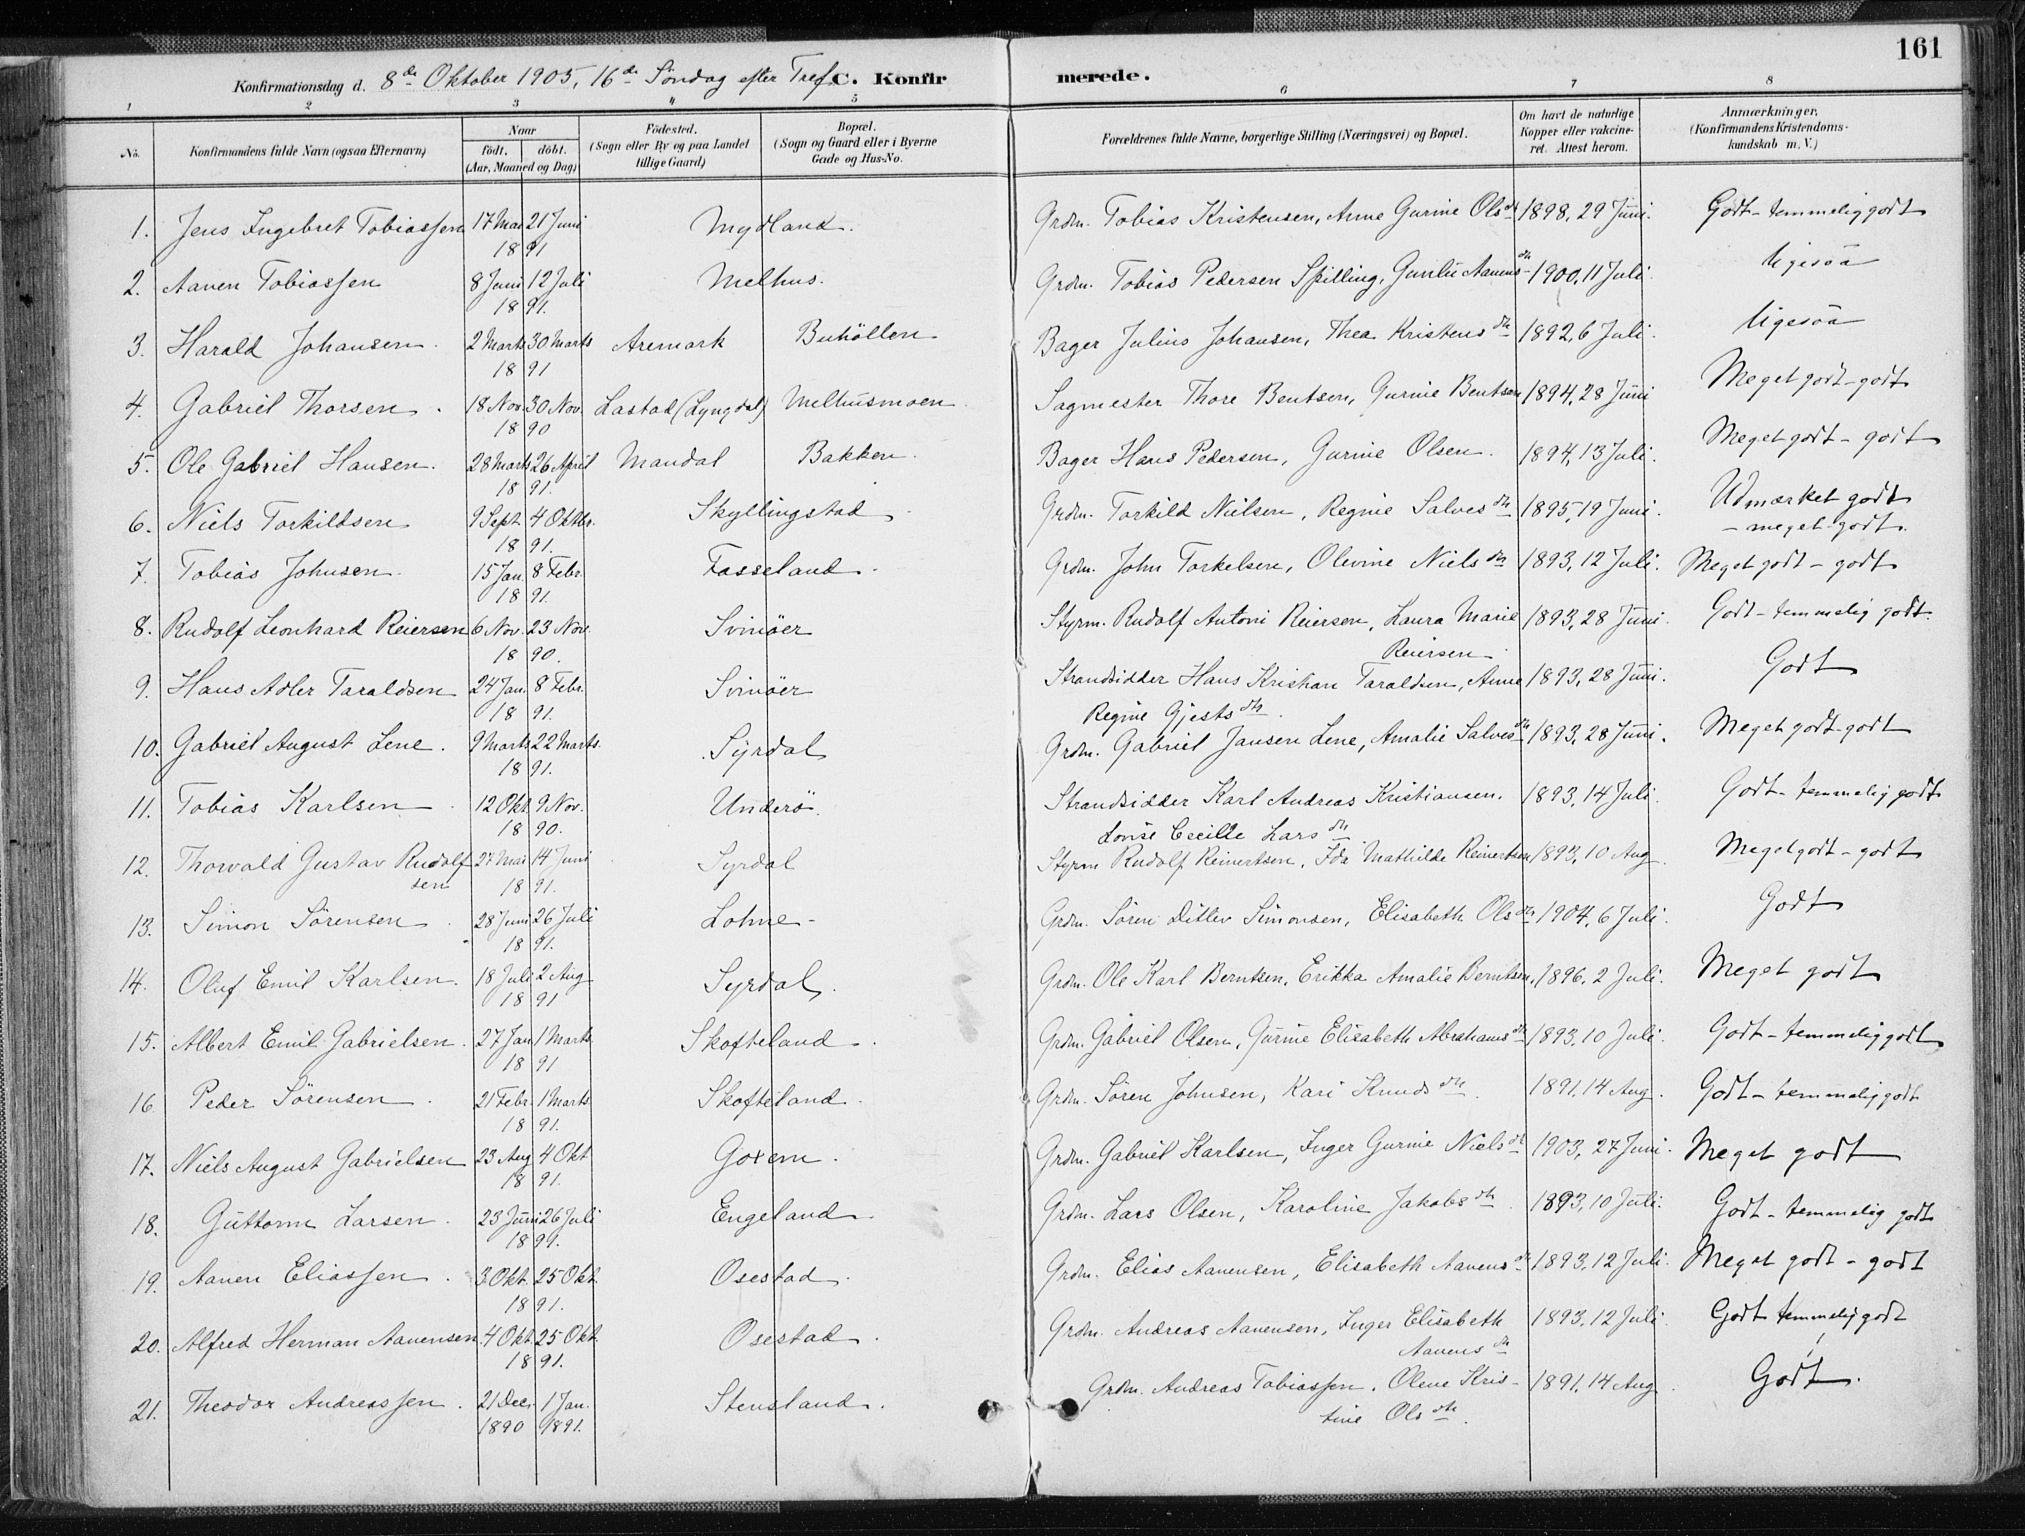 161
Konfirmationsdag d. 8de Oktober 1905, 16de Søndag efter Tref. C. Konfirmerede.
1 2 3 4 5 6 7 8
No. Konfirmandens fulde Navn (ogsaa Efternavn) Naar født. døbt. (Aar, Maaned og Dag) Fødested. (Sogn eller By og paa Landet tillige Gaard) Bopæl. (Sogn og Gaard eller i Byerne Gade og Hus-No. Forældrenes fulde Navne, borgerlige Stilling (Næringsvei) og Bopæl. Om havt de naturlige Kopper eller vakcineret. Attest herom. Anmærkninger. (Konfirmandens Kristendomskundskab m. V.)
1. Jens Ingebret Tobiassen 17 Mai 21 Juni 1891 Mydland. Grdm. Tobias Kristensen, Anne Gurine Olsdtr 1898, 29 Juni. Godt - temmelig godt
2. Aanen Tobiassen 8 Juni 12 Juli 1891. Melhus. Grdm. Tobias Pedersen Spilling, Gunlie Aanensdtr 1900, 11 Juli. ligesaa
3. Harald Johansen. 2 Marts 30 Marts 1891 Aremark Buhöllen Bager Julius Johansen, Thea Kristensdtr 1892, 6 Juli. ligesaa
4. Gabriel Thorsen. 18 Nov. 30 Nov. 1890 Lastad (Lyngdal) Melhusmoen. Sagmester Thore Bentsen, Gurine Bentsen 1894, 28 Juni Meget godt - godt
5. Ole Gabriel Hansen. 28 Marts 26 April 1891. Mandal Bakken. Bager Hans Pedersen, Gurine Olsen. 1894, 13 Juli. Meget godt - godt
6. Niels Torkildsen 9 Sept. 4 Oktbr. 1891. Skyllingstad Grdm. Torkild Nielsen, Regine Salvesdtr 1895, 19 Juni. Udmærket godt - meget godt.
7. Tobias Johnsen. 15 Jan. 8 Febr. 1891. Fasseland. Grdm. John Torkelsen, Olevine Nielsdtr 1893, 12 Juli. Meget godt - godt
8. Rudolf Leonhard Reiersen 6 Nov. 23 Nov. 1890. Svinöer Styrm. Rudolf Antoni Reiersen, Laura Marie Reiersen. 1893, 28 Juni. Godt - temmelig godt.
9. Hans Adler Taraldsen 24 Jan. 8 Febr. 1891. Svinöer Strandsidder Hans Kristian Taraldsen, Anne Regine Gjestsdtr. 1893, 28 Juni. Godt
10. Gabriel August Lene. 9 Marts 22 Marts. 1891. Syrdal Grdm. Gabriel Jansen Lene, Amalie Salvesdtr 1893, 28 Juni. Meget godt - godt
11. Tobias Karlsen. 12 Okt. 9 Nov. 1890. Underö. Strandsidder Karl Andreas Kristiansen. Lovise Cecilie Larsdtr. 1893, 14 Juli. Godt - temmelig godt
12. Thorvald Gustav Rudolfsen 27 Mai 14 Juni 1891. Syrdal Styrm Rudolf Reinertsen, Ida Mathilde Reinertsen 1893, 10 Aug. Meget godt - godt
13. Simon Sörensen. 28 Juni 26 Juli 1891. Lohne - Grdm. Sören Ditlev Simonsen, Elisabeth Olsdtr 1904, 6 Juli. Godt
14. Oluf Emil Karlsen. 18 Juli 2 Aug 1891 Syrdal. Grdm. Ole Karl Berntsen, Erikka Amalie Berntsen. 1896, 2 Juli. Meget godt
15. Albert Emil Gabrielsen. 27 Jan 1 Marts. 1891 Skofteland. Grdm. Gabriel Olsen, Gurine Elisabeth Abrahamsdtr 1893, 10 Juli. Godt - temmelig godt
16 Peder Sörensen. 21 Febr. 1 Marts. 1891. Skofteland. Grdm. Sören Johnsen, Kari Knudsdtr. 1891, 14 Aug. Godt - temmelig godt
17. Niels August Gabrielsen 23 Aug 4 Okt 1891. Goxem. Grdm. Gabriel Karlsen, Inger Gurine Nielsdtr 1903, 27 Juni. Meget godt
18. Guttorm Larsen. 23 Juni 26 Juli 1891. Engeland Grdm. Lars Olsen, Karoline Jakobsdtr 1893, 10 Juli. Godt - temmelig godt
19. Aanen Eliassen. 3 Okt. 25 Okt. 1891. Osestad. Grdm. Elias Aanensen, Elisabeth Aanensdtr 1893, 12 Juli. Meget godt - godt
20. Alfred Herman Aanensen 4 Okt. 25 Okt. 1891. Osestad. Grdm. Andreas Aanensen, Inger Elisabeth Aanensdtr 1893, 12 Juli. Godt temmelig godt
21. Theodor Andreassen. 21 Dec. 1890 1 Jan. 1891. Stensland. Grdm. Andreas Tobiassen, Olene Kristine Olsdtr. 1891, 14 Aug. Godt.